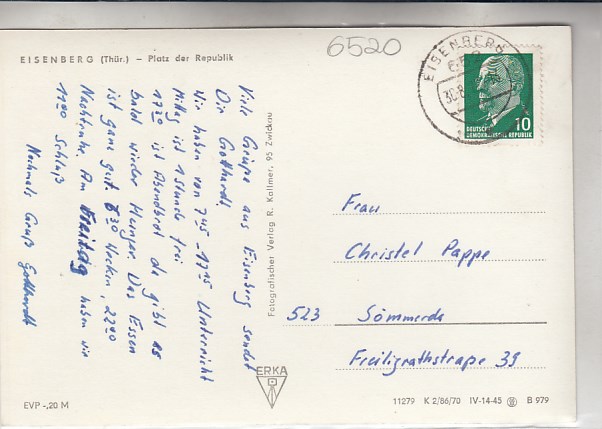 6520
EISENBERG (Thür.) – Platz der Republik
EISENBERG
DEUTSCHE
DEMOKRATISCHE REPUBLIK
10
Viele Grüße aus Eisenberg sendet
Dir Gotthardt
Wir haben von 7 45 - 17 15 Unterricht
Mittag ist 1 Stunde frei
17 20 ist Abendbrot da gibt es
bald wieder Hunger. Das Essen
ist ganz gut 6 30 Wecken, 22 20
Nachtruhe. Am Freitag haben wir
11 20 Schluß
Nochmals Gruß Gotthardt
Fotografischer Verlag R. Kallmer, 95 Zwickau
Frau
Christel Pappe
523 Sömmerda
Freiligrathstraße 39
ERKA
EVP -,20 M
11279 K 2/86/70 IV-14-45 B 979